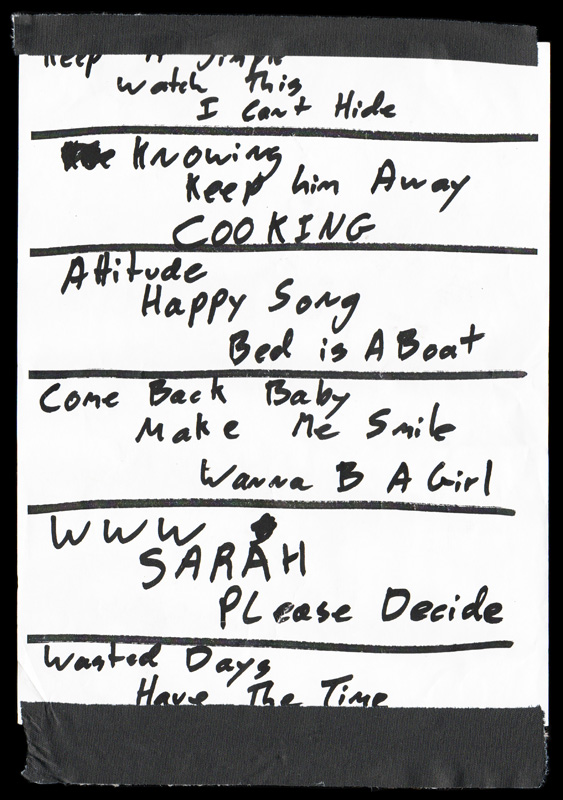 Keep It Simple
Watch This
I Can't Hide
Knowing
Keep him Away
COOKING
Attitude
Happy Song
Bed is A Boat
Come Back Baby
Make Me Smile
Wanna B A Girl
WWW
SARAH
PLease Decide
Wasted Days
Have The Time